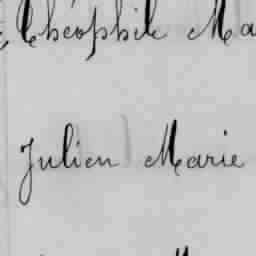 Théophile Ma
Julien Marie